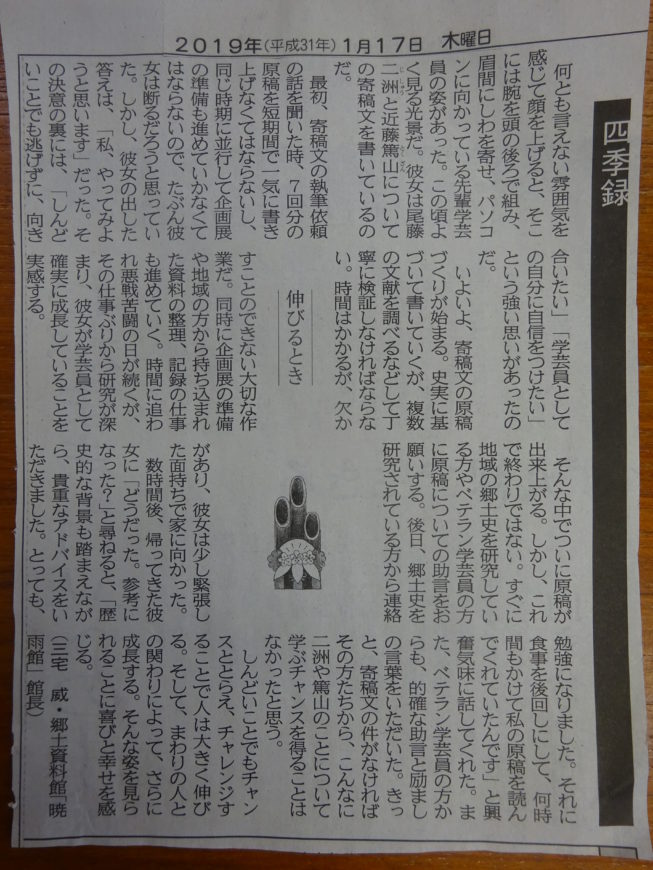 2019年(平成31年)1月17日 木曜日
四季録
何とも言えない雰囲気を
感じて顔を上げると、そこ
には腕を頭の後ろで組み、
眉間にしわを寄せ、パソコ
ンに向かっている先輩学芸
員の姿があった。この頃よ
く見る光景だ。彼女は尾藤
二洲と近藤篤山について
の寄稿文を書いているの
だ。
最初、寄稿文の執筆依頼
の話を聞いた時、7回分の
原稿を短期間で一気に書き
上げなくてはならないし、
同じ時期に並行して企画展
の準備も進めていかなくて
はならないので、たぶん彼
女は断るだろうと思ってい
た。しかし、彼女の出した
答えは、「私、やってみよ
うと思います」だった。そ
の決意の裏には、「しんど
いことでも逃げずに、向き
合いたい」「学芸員として
の自分に自信をつけたい」
という強い思いがあったの
だ。
いよいよ、寄稿文の原稿
づくりが始まる。史実に基
づいて書いていくが、複数
の文献を調べるなどして丁
寧に検証しなければならな
い。時間はかかるが、欠か
伸びるとき
すことのできない大切な作
業だ。同時に企画展の準備
や地域の方から持ち込まれ
た資料の整理、記録の仕事
も進めていく。時間に追わ
れ悪戦苦闘の日が続くが、
その仕事ぶりから研究が深
まり、彼女が学芸員として
確実に成長していることを
実感する。
そんな中でついに原稿が
出来上がる。しかし、これ
で終わりではない。すぐに
地域の郷土史を研究してい
る方やベテラン学芸員の方
に原稿についての助言をお
願いする。後日、郷土史を
研究されている方から連絡
があり、彼女は少し緊張し
た面持ちで家に向かった。
数時間後、帰ってきた彼
女に「どうだった。参考に
なった?」と尋ねると、「歴
史的な背景も踏まえなが
ら、貴重なアドバイスをい
ただきました。とっても、
勉強になりました。それに
食事を後回しにして、何時
間もかけて私の原稿を読ん
でくれていたんです」と興
奮気味に話してくれた。ま
た、ベテラン学芸員の方か
らも、的確な助言と励まし
の言葉をいただいた。きっ
と、寄稿文の件がなければ
その方たちから、こんなに
二洲や篤山のことについて
学ぶチャンスを得ることは
なかったと思う。
しんどいことでもチャン
スととらえ、チャレンジす
ることで人は大きく伸び
る。そして、まわりの人と
の関わりによって、さらに
成長する。そんな姿を見ら
れることに喜びと幸せを感
じる。
(三宅 威・郷土資料館「暁
雨館」館長)